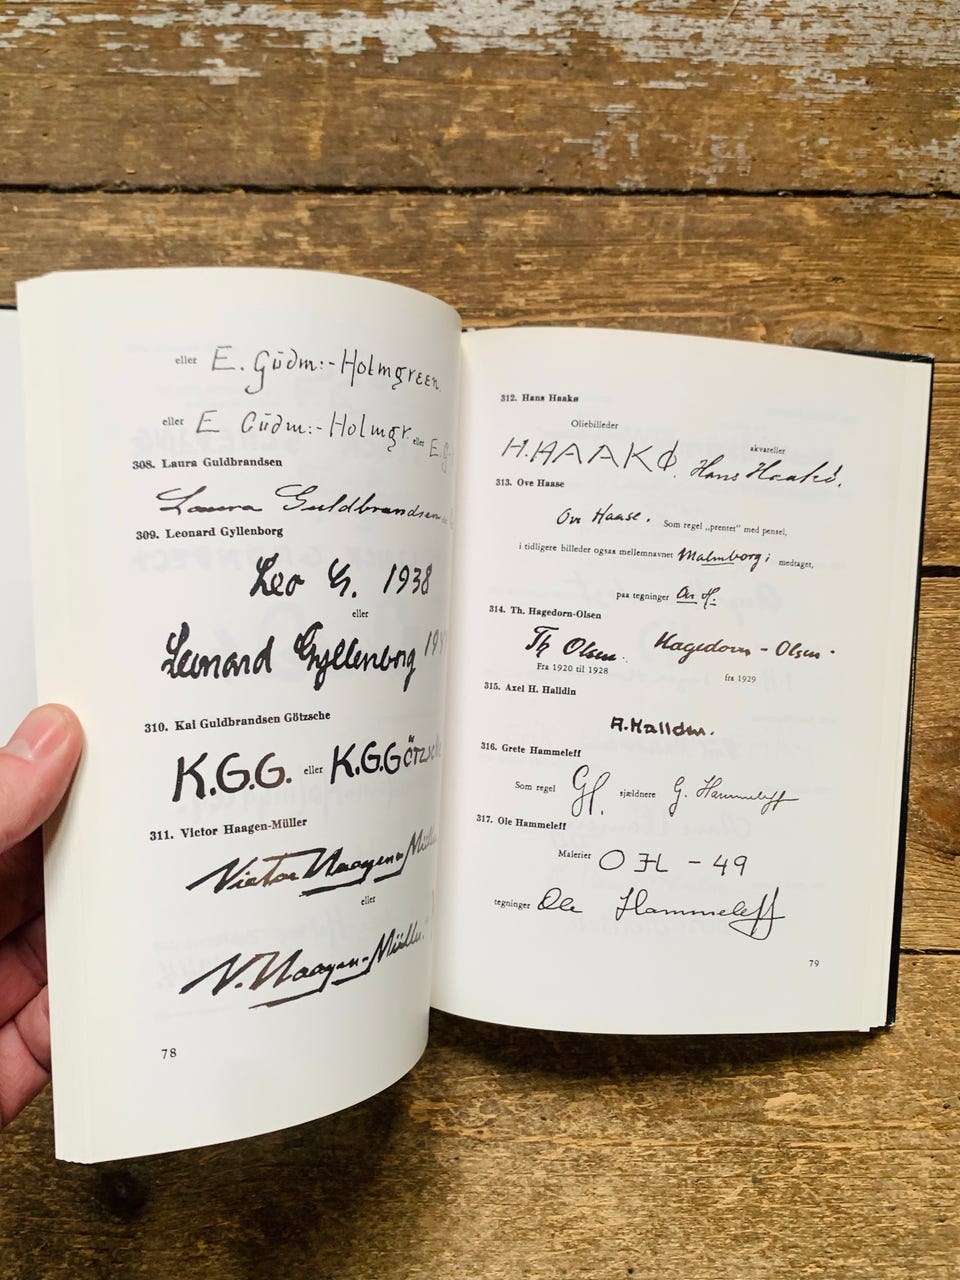 eller E. Gūdm:-Holmgreen.
eller E Gūdm:-Holmgr. eller E.
308. Laura Guldbrandsen
Laura Guldbrandsen
309. Leonard Gyllenborg
Leo G. 1938
eller
Leonard Gyllenborg
310. Kai Guldbrandsen Götzsche
K.G.G. eller K.G.Götzsche
311. Victor Haagen-Müller
Victor Haagen-Müller
eller
V. Haagen-Müller
78
312. Hans Haakø
Oliebilleder akvareller
H. HAAKØ. Hans Haakø.
313. Ove Haase
Ove Haase. Som regel „prentet" med pensel,
i tidligere billeder ogsaa mellemnavnet Malmborg; medtaget,
paa tegninger Ov H.
314. Th. Hagedorn-Olsen
Th Olsen. Hagedorn-Olsen.
Fra 1920 til 1928 fra 1929
315. Axel H. Halldin
A. Halldin.
316. Grete Hammeleff
Som regel GH. sjældnere G. Hammeleff
317. Ole Hammeleff
Malerier OH - 49
tegninger Ole Hammeleff
79